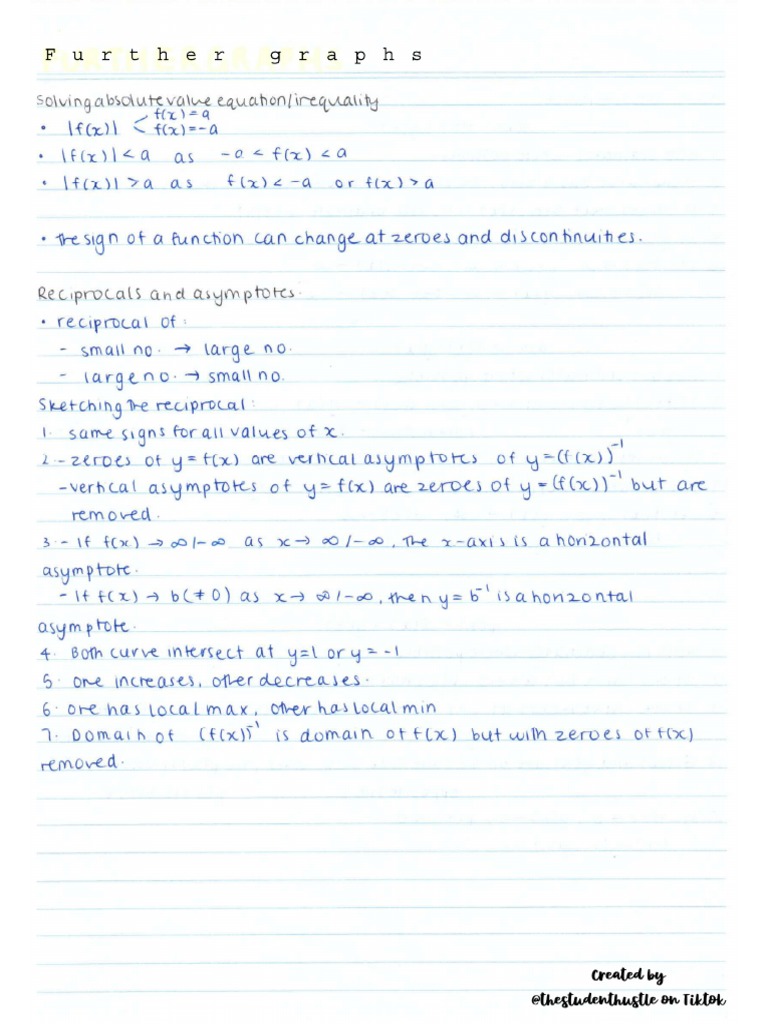 Further graphs
Solving absolute value equation/inequality
• |f(x)| < f(x)=a
f(x)=-a
• |f(x)|<a as -a < f(x) < a
• |f(x)| >a as f(x) < -a or f(x) > a
• The sign of a function can change at zeroes and discontinuities.
Reciprocals and asymptotes.
• reciprocal of:
- small no. → large no.
- large no. → small no.
Sketching the reciprocal:
1. same signs for all values of x.
2.- zeroes of y=f(x) are vertical asymptotes of y=(f(x))⁻¹
-vertical asymptotes of y=f(x) are zeroes of y=(f(x))⁻¹ but are
removed.
3.- If f(x) → ∞/-∞ as x→ ∞/-∞, The x-axis is a horizontal
asymptote.
- If f(x) → b(≠0) as x→ ∞/-∞, then y= b⁻¹ is a horizontal
asymptote.
4. Both curve intersect at y=1 or y=-1
5. one increases, other decreases.
6. one has local max, other has local min
7. Domain of (f(x))⁻¹ is domain of f(x) but with zeroes of f(x)
removed.
Created by
@thestudenthustle on Tiktok